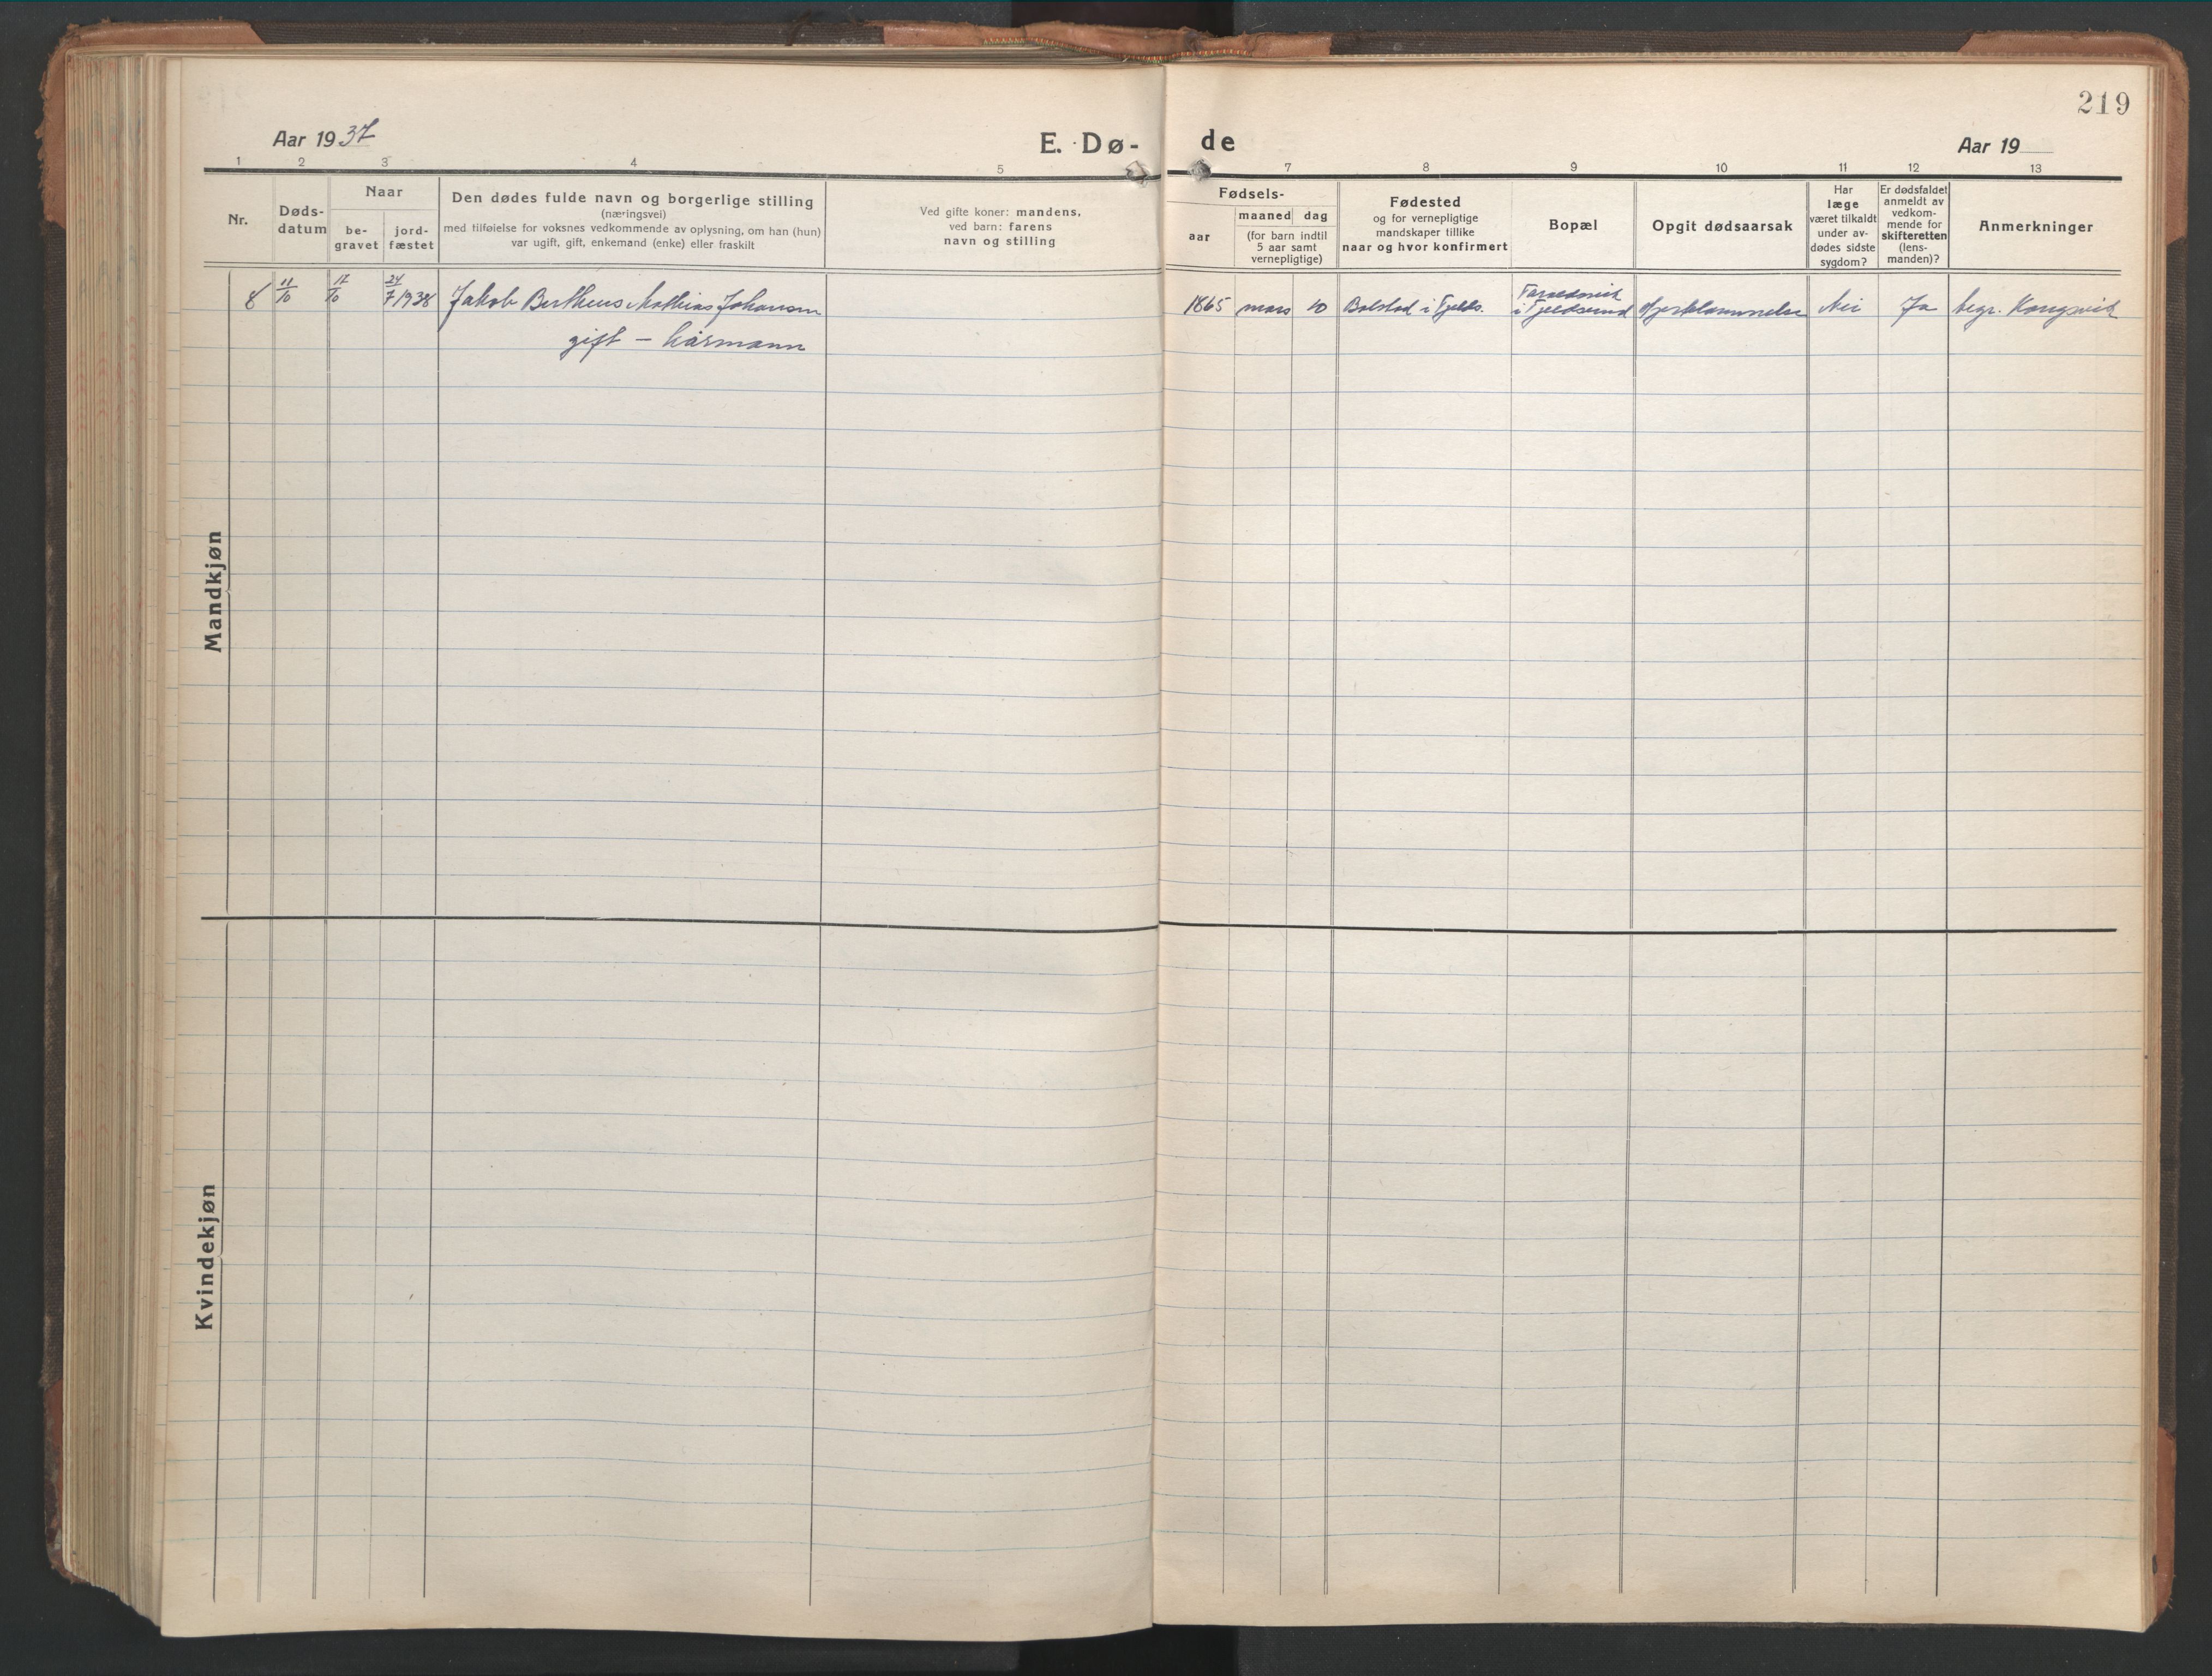 219
Aar 1937
E. Dø-
de
Aar 19
1 2 3 4 5 7 8 9 10 11 12 13
Nr.
Døds-
datum
Naar
be-
gravet
jord-
fæstet
Den dødes fulde navn og borgerlige stilling
(næringsvei)
med tilføielse for voksnes vedkommende av oplysning, om han (hun)
var ugift, gift, enkemand (enke) eller fraskilt
Ved gifte koner: mandens,
ved barn: farens
navn og stilling
Fødsels-
aar
maaned dag
(for barn indtil
5 aar samt
vernepligtige)
Fødested
og for vernepligtige
mandskaper tillike
naar og hvor konfirmert
Bopæl
Opgit dødsaarsak
Har
læge
været tilkaldt
under av-
dødes sidste
sygdom?
Er dødsfaldet
anmeldt av
vedkom-
mende for
skifteretten
(lens-
manden)?
Anmerkninger
8 11/10 17/10 24/7 1938 Jakob Bertheus Mathias Johansen
gift - kårmann
1865 mars 10 Bolstad i Fjelds.
i Fjeldsund
Hjerteslammelse Nei Ja begr. Kongsvik
Mandkjøn
Kvindekjøn